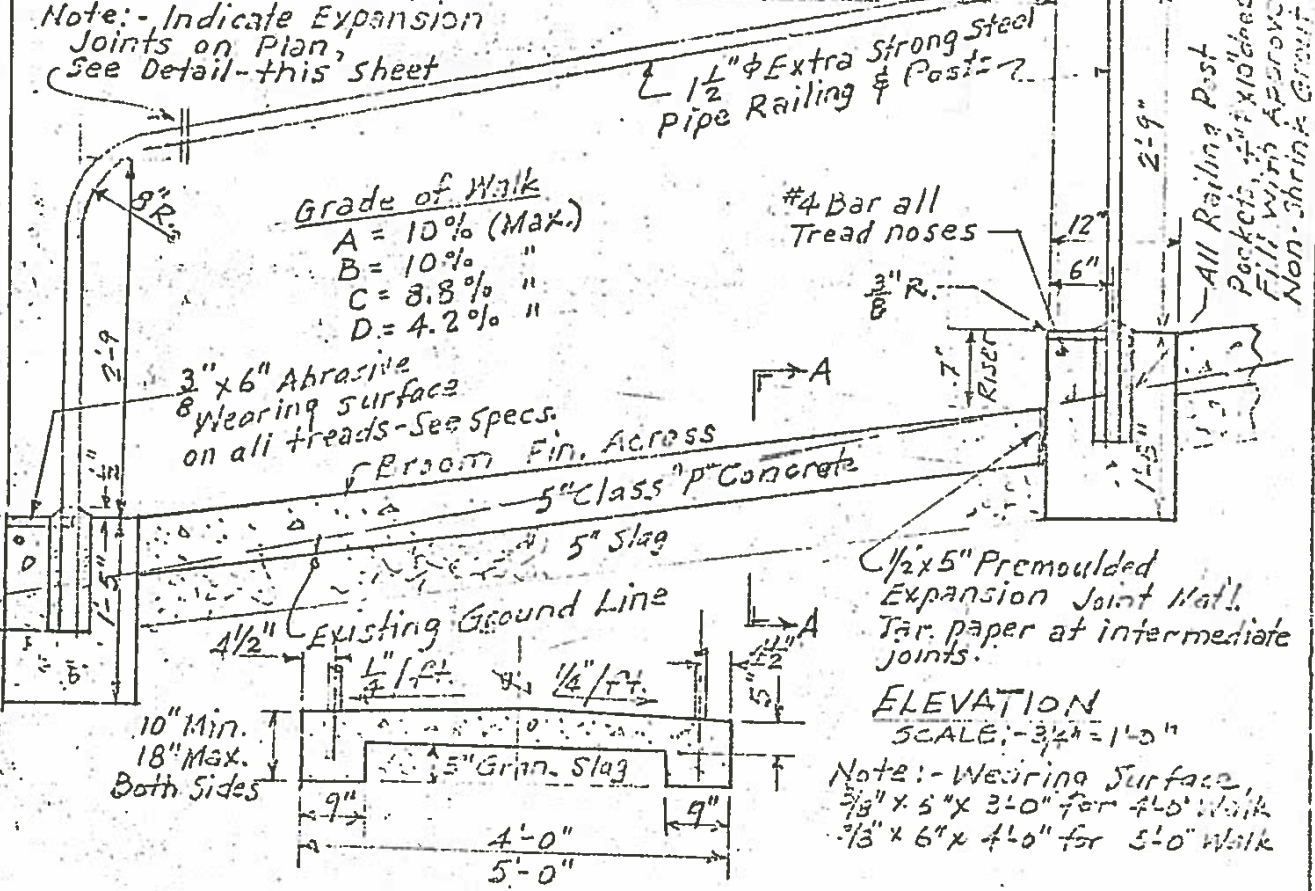 Note:- Indicate Expansion
Joints on Plan,
See Detail-this Sheet
1 1/2" φ Extra Strong Steel
Pipe Railing & Posts
All Railing Post
Pockets, x 10" deep
Fill with Approve
Non-Shrink Grout
2'-9"
8" R.
Grade of Walk
A = 10% (Max.)
B = 10% "
C = 8.8% "
D = 4.2% "
#4 Bar all
Tread noses
12"
6"
3/8" R.
2'-9
3/8" x 6" Abrasive
Wearing surface
on all treads-See Specs.
7"
Riser
A
Broom Fin. Across
5" Class "P" Concrete
5" Slag
1'-5"
1'-5"
1/2 x 5" Premoulded
Expansion Joint Mat'l.
Tar paper at intermediate
joints.
Existing Ground Line
A
4 1/2"
1/4"/ft.
1/4"/ft.
4 1/2"
5"
10" Min.
18" Max.
Both Sides
5" Gran. Slag
9"
9"
4'-0"
5'-0"
ELEVATION
SCALE:- 3/4" = 1'-0"
Note:- Wearing Surface,
3/8" x 6" x 3'-0" for 4'-0" Walk
3/8" x 6" x 4'-0" for 5'-0" Walk